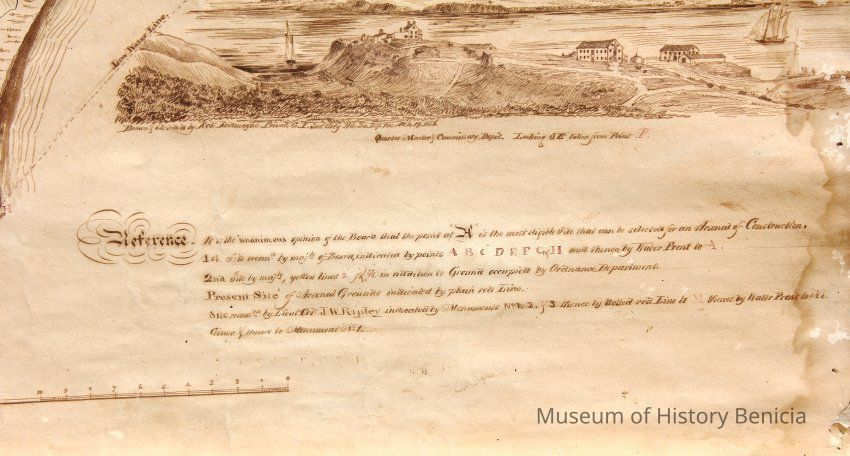 Low Water Line.
Drawn & sketched by Private
Quarter Master & Commissary Depôt. Looking S.E. taken from Point P.
Reference. It is the unanimous opinion of the Board that the point at "A" is the most eligible Site that can be selected for an Arsenal of Construction.
1st Site recomd by majty of Board, indicated by points A B C D E F G & H and thence by Water Front to A.
2nd Site by majty, yellow lines in addition to Ground occupied by Ordnance Department.
Present Site of Arsenal Grounds indicated by plain red Line.
Site recomd by Lieut Col J. W. Ripley indicated by Monuments No 1, 2, & 3 thence by dotted red Line to thence by Water Front to
Corner & thence to Monument No 1.
Museum of History Benicia